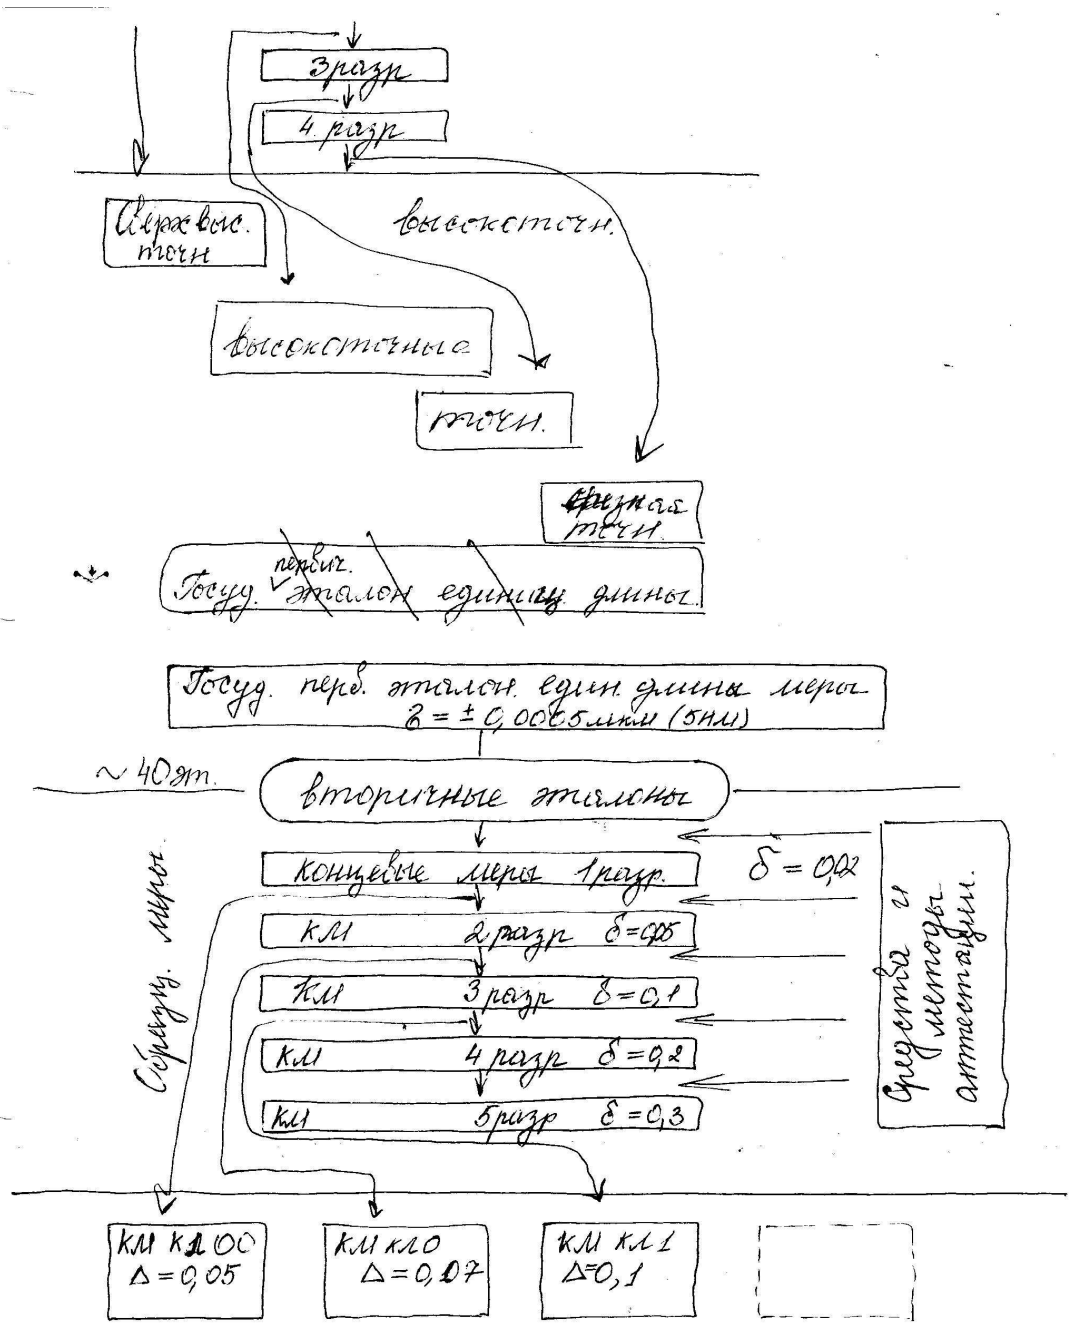 3 разр
4. разр
Сверхвыс.
точн
высокоточн.
высокоточные
точн.
точн.
первич.
Госуд. эталон единицы длины.
Госуд. перв. эталон. един. длины меры
= ± 0,0005мкм (5НМ)
~ 40эт.
вторичные эталоны
концевые меры 1разр.
δ = 0,02
КМ 2 разр δ=0,05
КМ 3 разр δ=0,1
КМ 4 разр δ=0,2
КМ 5разр δ=0,3
Образц. меры
Средства и
методы
аттестации.
КМ КЛ 00
Δ=0,05
КМ КЛ0
Δ=0,07
КМ КЛ1
Δ=0,1